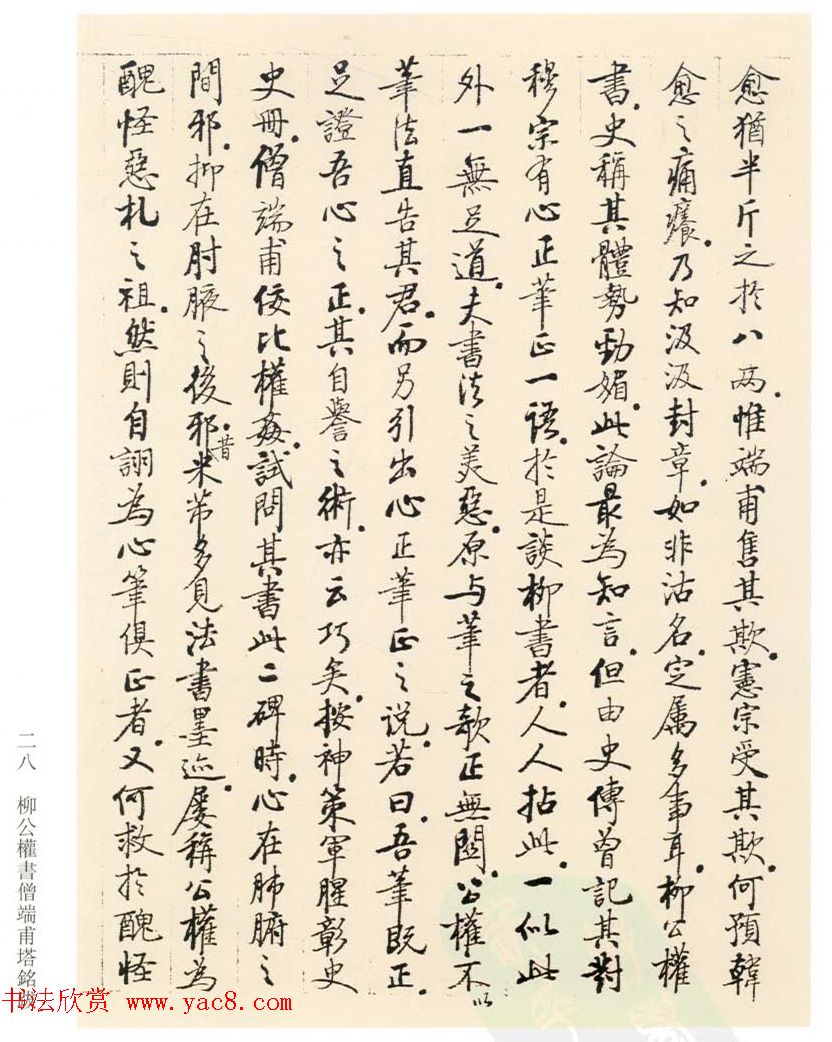 愈猶半斤之於八兩。惟端甫售其欺。憲宗受其欺。何預韓
愈之痛癢。乃知汲汲封章。如非沽名。定属多事耳。柳公權
書。史稱其體勢勁媚。此論最為知言。但由史傳曾記其對
穆宗有心正筆正一語。於是談柳書者。人人拈此。一似此
外一無足道。夫書法之美惡。原与筆之欹正無関。公權不以
筆法直告其君。而另引出心正筆正之说。若曰。吾筆既正。
足證吾心之正。其自譽之術。亦云巧矣。按神策軍腥彰史
史冊。僧端甫佞比權姦。試問其書此二碑時。心在肺腑之
間邪。抑在肘腋之後邪。昔米芾多見法書墨迹。屡稱公權為
醜怪惡札之祖。然則自詡為心筆俱正者。又何救於醜怪
二八 柳公權書僧端甫塔銘跋
书法欣赏 www.yac8.com